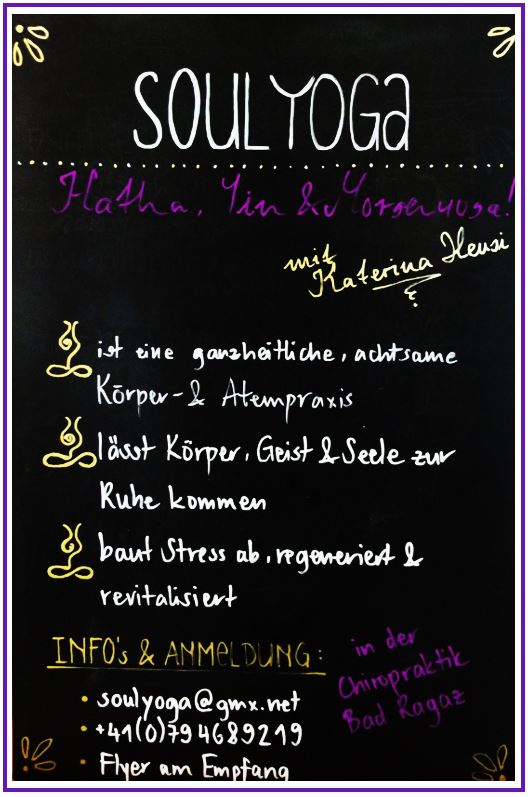 SOULYOGa
Hatha, Yin & Morgenyoga!
mit
Katerina Heusi
ist eine ganzheitliche, achtsame
Körper- & Atempraxis
lässt Körper, Geist & Seele zur
Ruhe kommen
baut Stress ab, regeneriert &
revitalisiert
INFO's & ANMELDUNG:
in der
Chiropraktik
Bad Ragaz
• soulyoga@gmx.net
• +41(0)794689219
• Flyer am Empfang